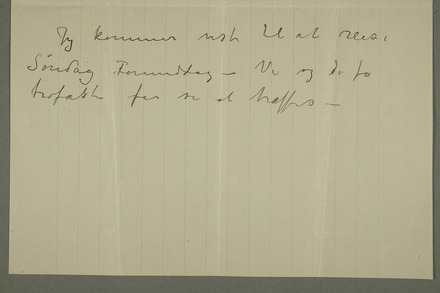 Jeg kommer nok til at reise
Søndag Formiddag – Vi og de fa
trofaste får se at træffes –